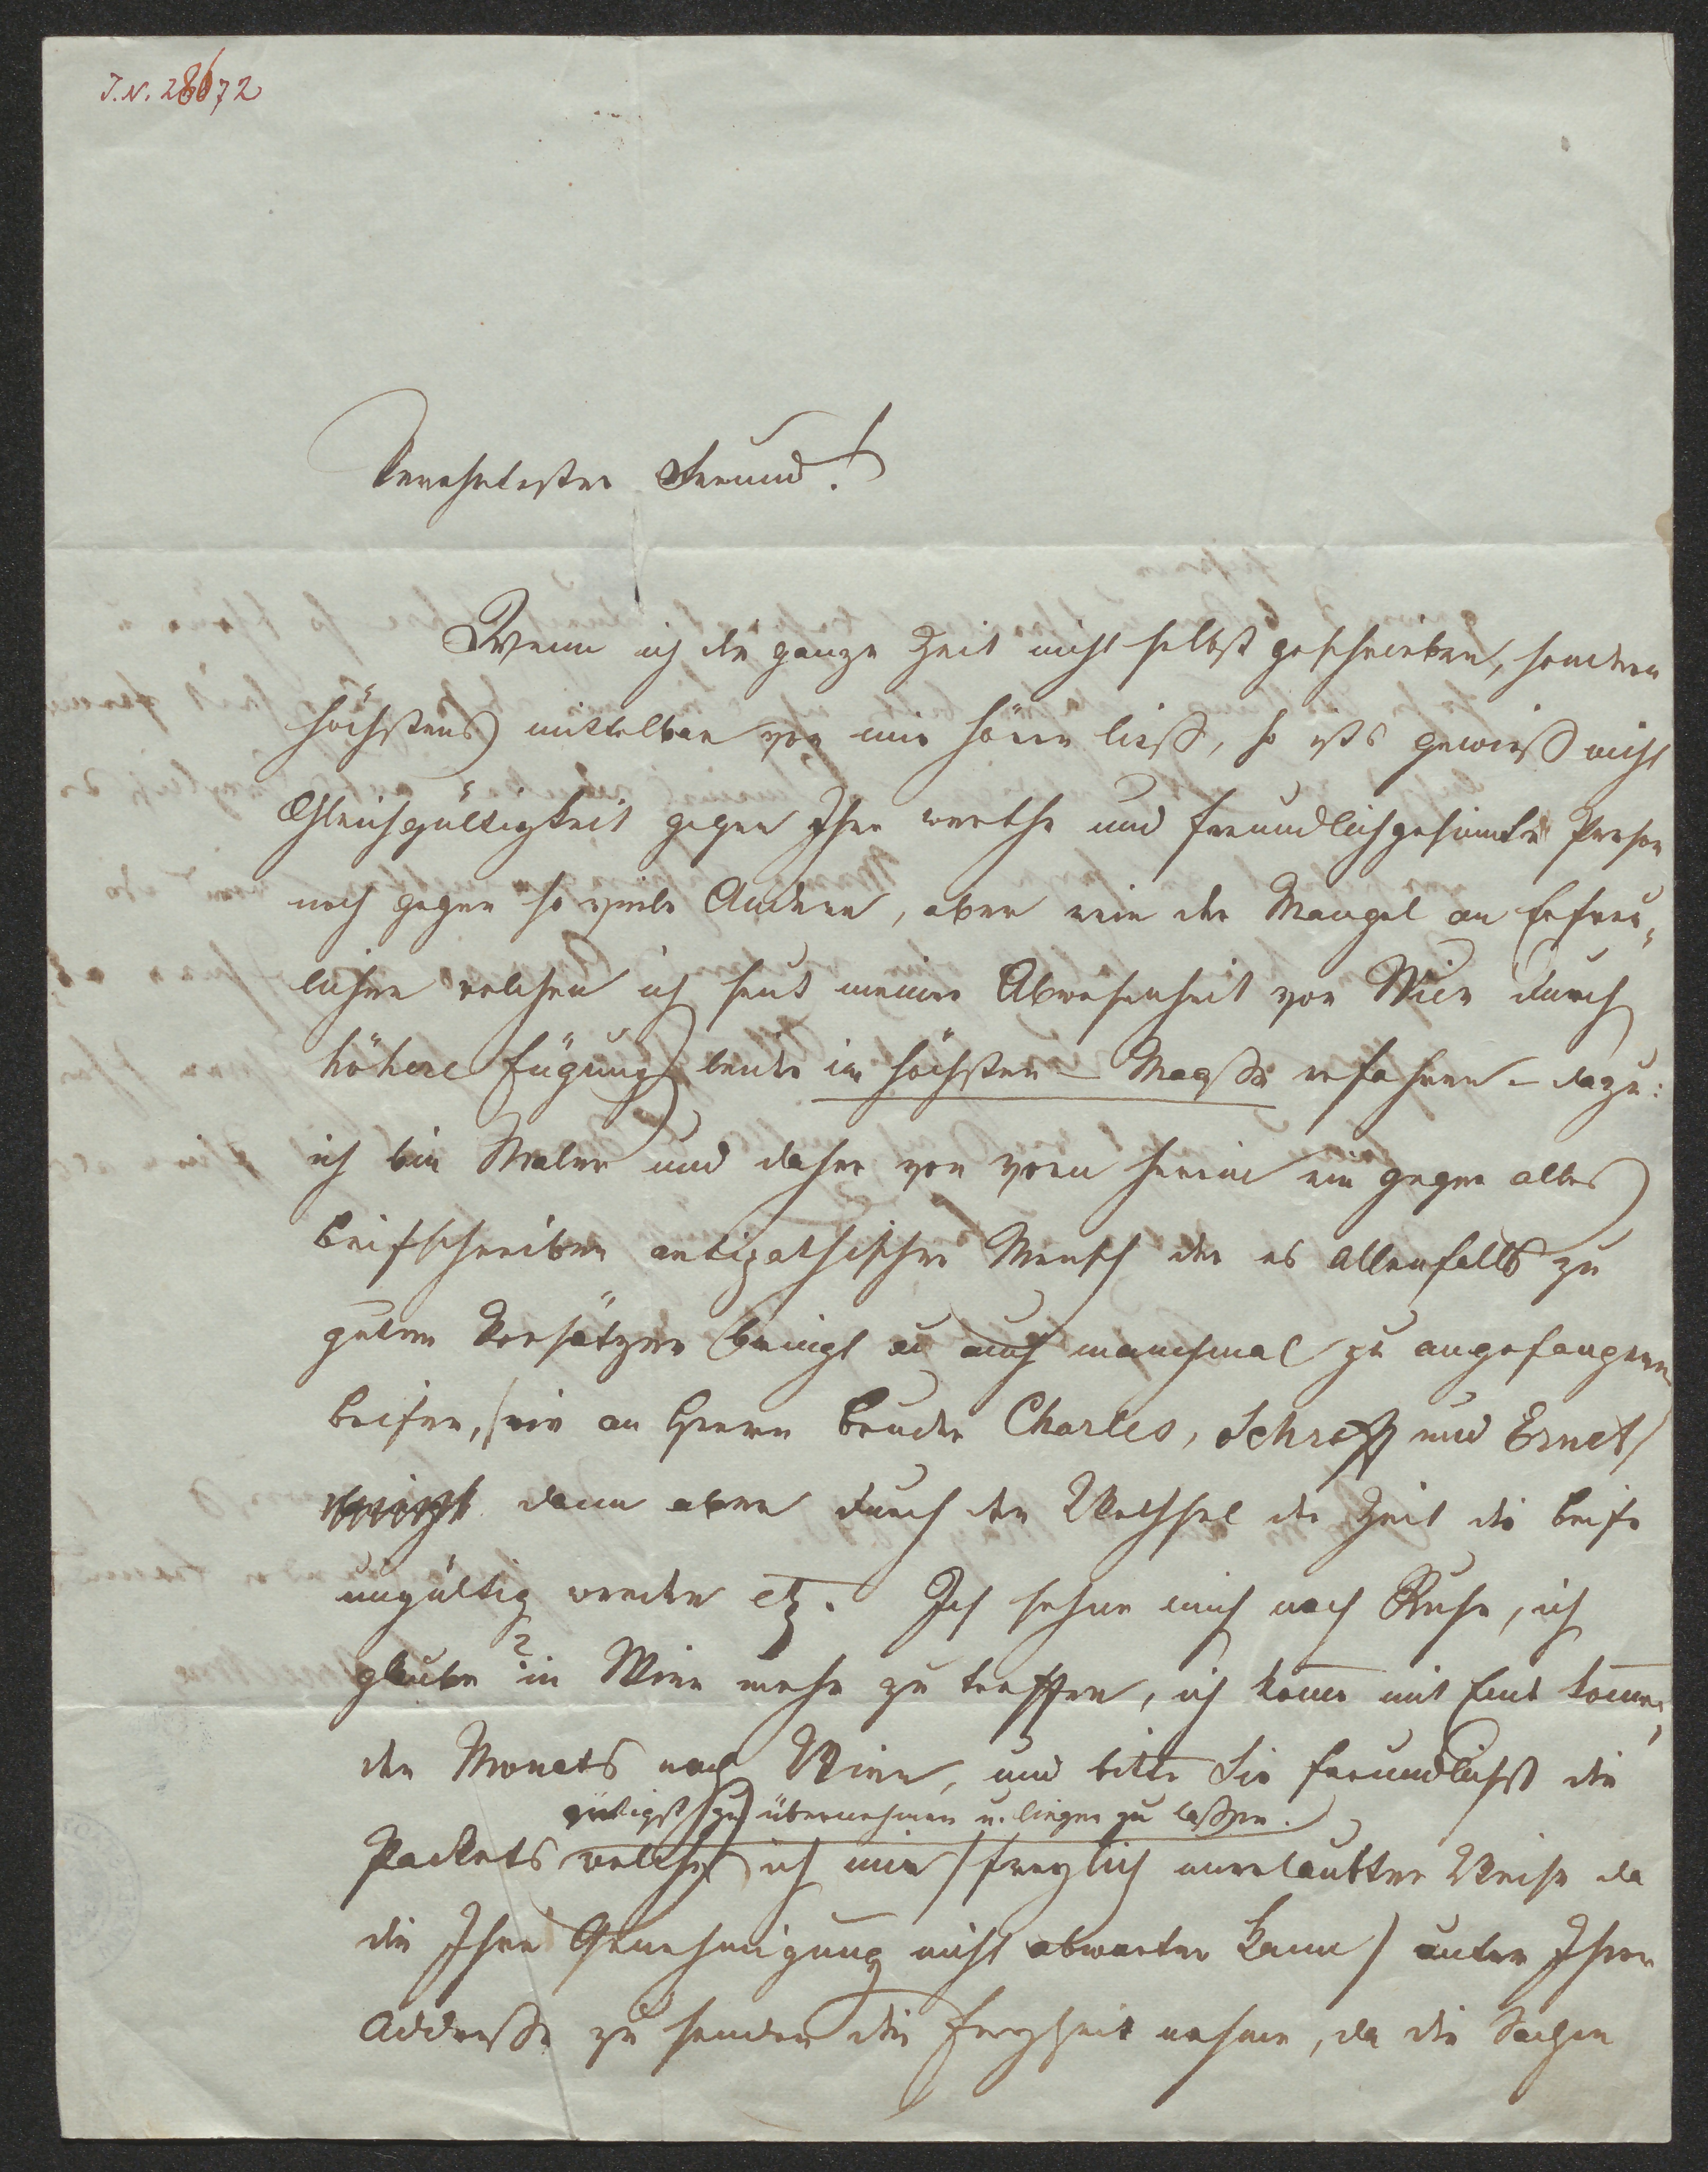 J.N. 28672
Verehrtester Freund!
Wenn ich die ganze Zeit nicht selbst geschrieben, sondern
höchstens mittelbar von mir hören ließ, so ists gewiß nicht
Gleichgültigkeit gegen Ihre werthe und freundlichgesinnte Person
noch gegen so viele Andere, aber wie der Mangel an Erfreu-
lichen welchen ich seit meiner Abwesenheit von Wien durch
höhere Fügung leider im höchsten Maaße erfahren – dazu:
ich bin Maler und daher von vorn herein ein gegen alles
Briefschreiben antipathischer Mensch der es allenfalls zu
guten Vorsätzen bringt u auch manchmal zu angefangenen
Briefen, (wie an Herrn Bruder Charles, und Ernst)
dann aber durch den Wechsel der Zeit die Briefe
ungültig werden etz. Ich sehne mich nach Ruhe, ich
glaube ? in Wien mehr zu treffen, ich komme mit End kommen-
den Monats nach Wien, und bitte Sie freundlichst die
gütigst zu übernehmen u. liegen zu laßen.
Packets welche ich mir (freylich unerlaubter Weise da
die Ihre Genehmigung nicht abwarten kann) unter Ihrer
Addreße zu senden die Freyheit nehme, da die Sachen